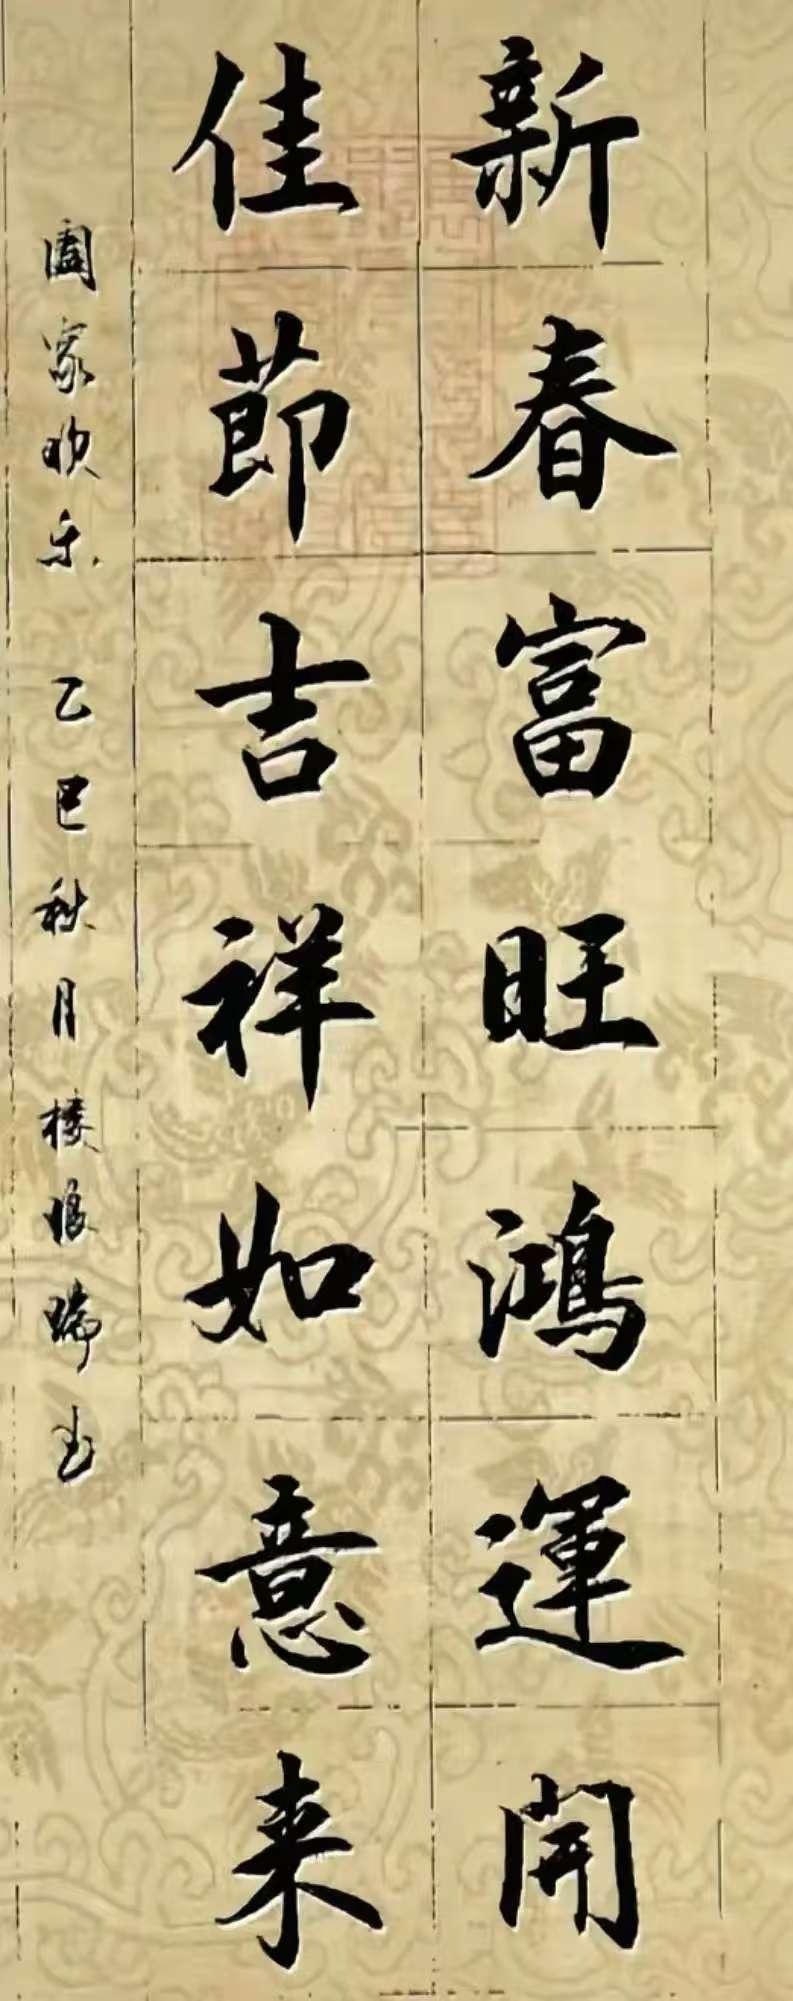 新春富旺鴻運開
佳節吉祥如意来
阖家欢乐 乙巳秋月 瑞玉